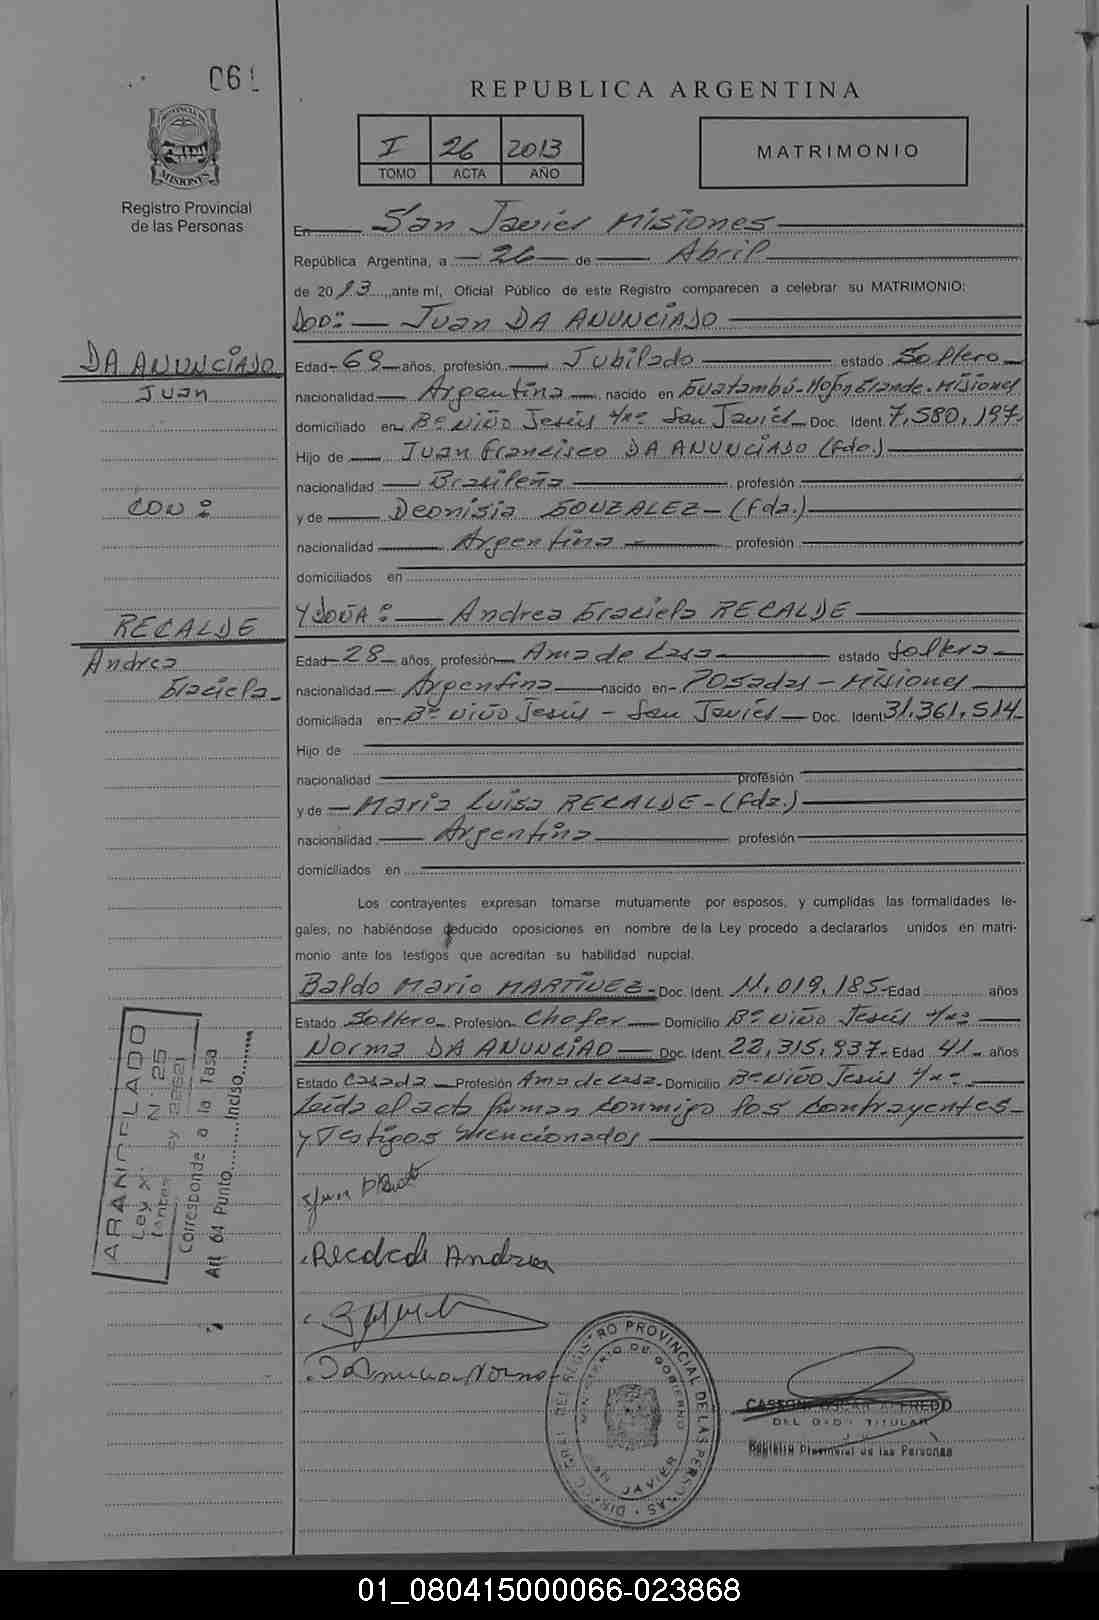 061
REPUBLICA ARGENTINA
I 26 2013
TOMO ACTA AÑO
MATRIMONIO
MISIONES
Registro Provincial
de las Personas
En San Javier Misiones
República Argentina, a 26 de Abril
de 2013, ante mí, Oficial Público de este Registro comparecen a celebrar su MATRIMONIO:
DON: Juan DA ANUNCIAÇO
DA ANUNCIAÇO
Juan
CON:
RECALDE
Andrea
Graciela
Edad 69 años, profesión Jubilado estado Soltero
nacionalidad Argentina nacido en Guatambú-Mojón Grande-Misiones
domiciliado en Bº Niño Jesús San Javier Doc. Ident. 7.580.197
Hijo de Juan Francisco DA ANUNCIAÇO (fdo.)
nacionalidad Brasileña profesión
y de Deonisia GONZALEZ - (fda.)
nacionalidad Argentina - profesión
domiciliados en
Y DOÑA: Andrea Graciela RECALDE
Edad 28 años, profesión Ama de Casa estado Soltera
nacionalidad Argentina nacido en Posadas - Misiones
domiciliada en Bº Niño Jesús - San Javier Doc. Ident 31.361.514
Hijo de
nacionalidad profesión
y de Maria Luisa RECALDE - (fda.)
nacionalidad Argentina profesión
domiciliados en
Los contrayentes expresan tomarse mutuamente por esposos, y cumplidas las formalidades le-
gales, no habiéndose deducido oposiciones en nombre de la Ley procedo a declararlos unidos en matri-
monio ante los testigos que acreditan su habilidad nupcial.
Baldo Mario MARTINEZ - Doc. Ident. 11.019.185 Edad años
Estado Soltero Profesión Chofer Domicilio Bº Niño Jesús
Norma DA ANUNCIAO Doc. Ident. 22.315.937 - Edad 41 años
Estado Casada Profesión Ama de Casa - Domicilio Bº Niño Jesús
Leída el acta firman conmigo los contrayentes
y Testigos mencionados
ARANCELADO
Ley X: N: 25
(antes Ley 22621
Corresponde a la Tasa
Art 64 Punto Inciso
Recalde Andrea
DIREC. GRAL DEL REGISTRO PROVINCIAL DE LAS PERSONAS
MINISTERIO DE GOBIERNO
SAN JAVIER
OSCAR ALFREDO
TITULAR
Registro Provincial de las Personas
01_080415000066-023868